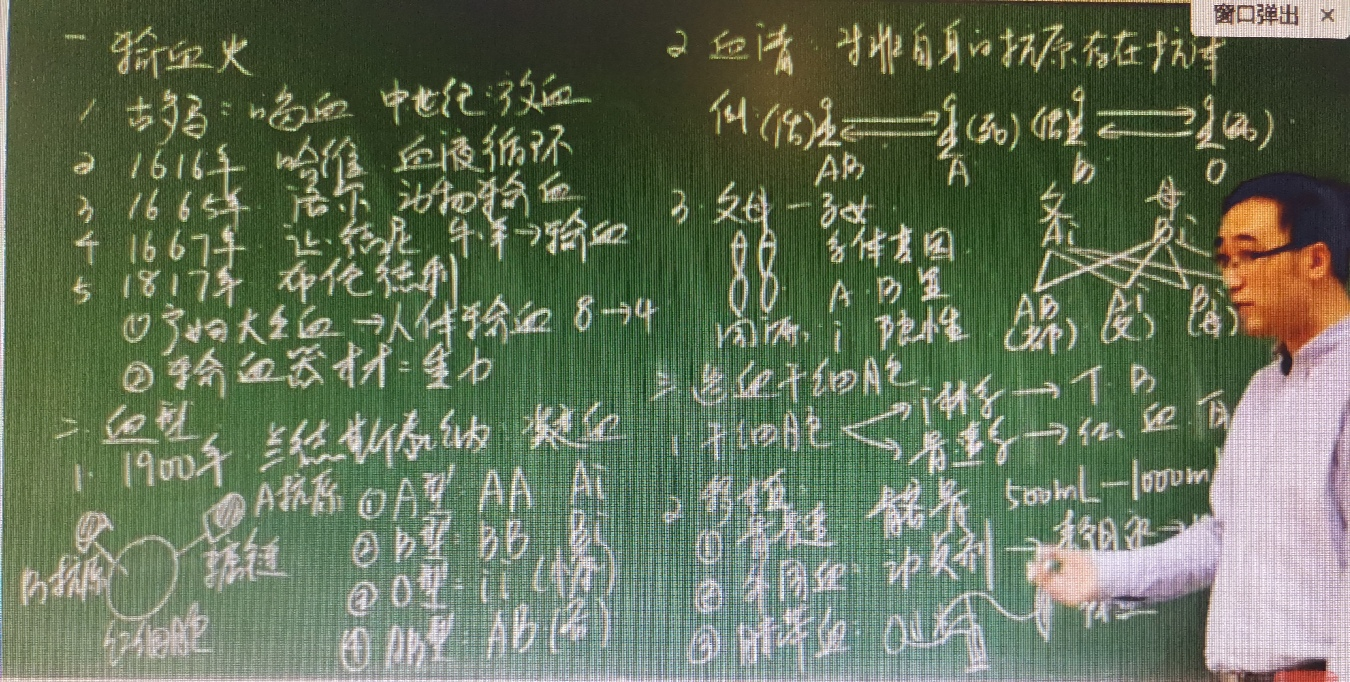 窗口弹出 ×
一 输血史
1 古罗马：喝血 中世纪：放血
2 1616年 哈维 血液循环
3 1665年 洛尔 动物输血
4 1667年 让·德尼 牛.羊→输血
5 1817年 布伦德利
① 产妇大出血→人体输血 8→4
② 输血器材：重力
二. 血型
1. 1900年 兰德斯泰纳 凝血
A抗原
B抗原
糖链
红细胞
① A型：AA Ai
② B型：BB Bi
③ O型：ii
④ AB型：AB
2 血清：对非自身的抗原存在抗体
例：(供) (受) (供) (受)
AB A B O
3. 父母－子女
等位基因
A.B 显
同源. i 隐性
父 母
Ai Bi
AB Ai Bi
三 造血干细胞
1 干细胞 淋系→T.B
骨髓系→红、血
2 移植：
① 骨髓 髂骨 500mL－1000m
② 外周血：动员剂→
③ 脐带血：